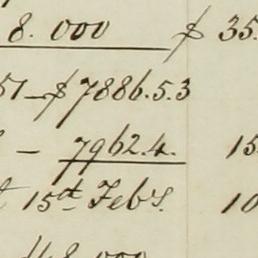 8.000 $ 35.
51 - $ 7886.5.3
- 7962.4. 15
15th Feb's. 10
48.000